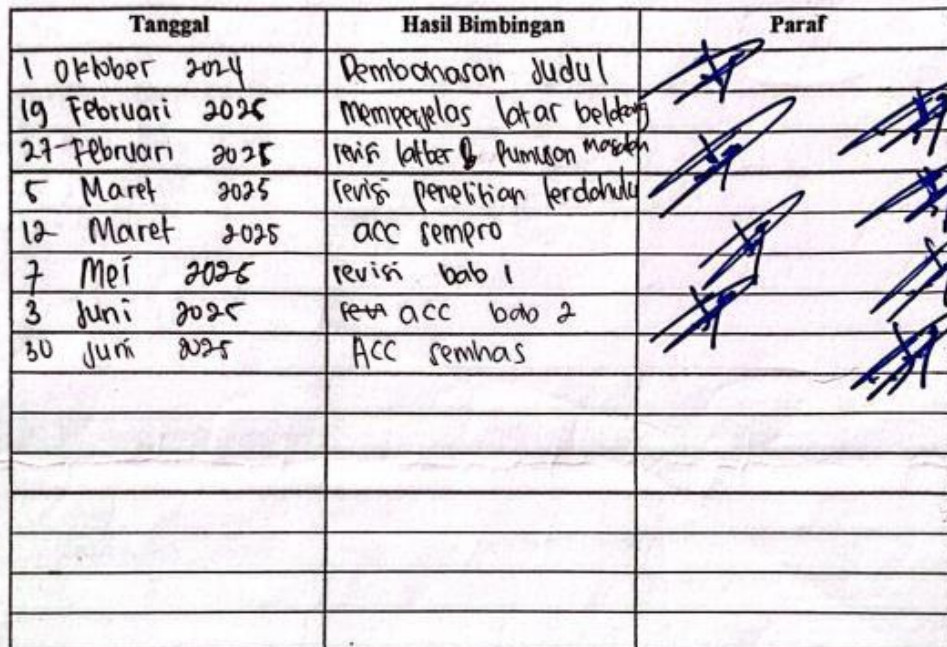 Tanggal Hasil Bimbingan Paraf
1 Oktober 2024 Pembahasan Judul
19 Februari 2025 memperjelas latar belakang
27 Februari 2025 revisi latber & Rumusan masalah
5 Maret 2025 revisi penelitian terdahulu
12 Maret 2025 acc sempro
7 Mei 2025 revisi bab 1
3 Juni 2025 acc bab 2
30 Juni 2025 ACC semhas